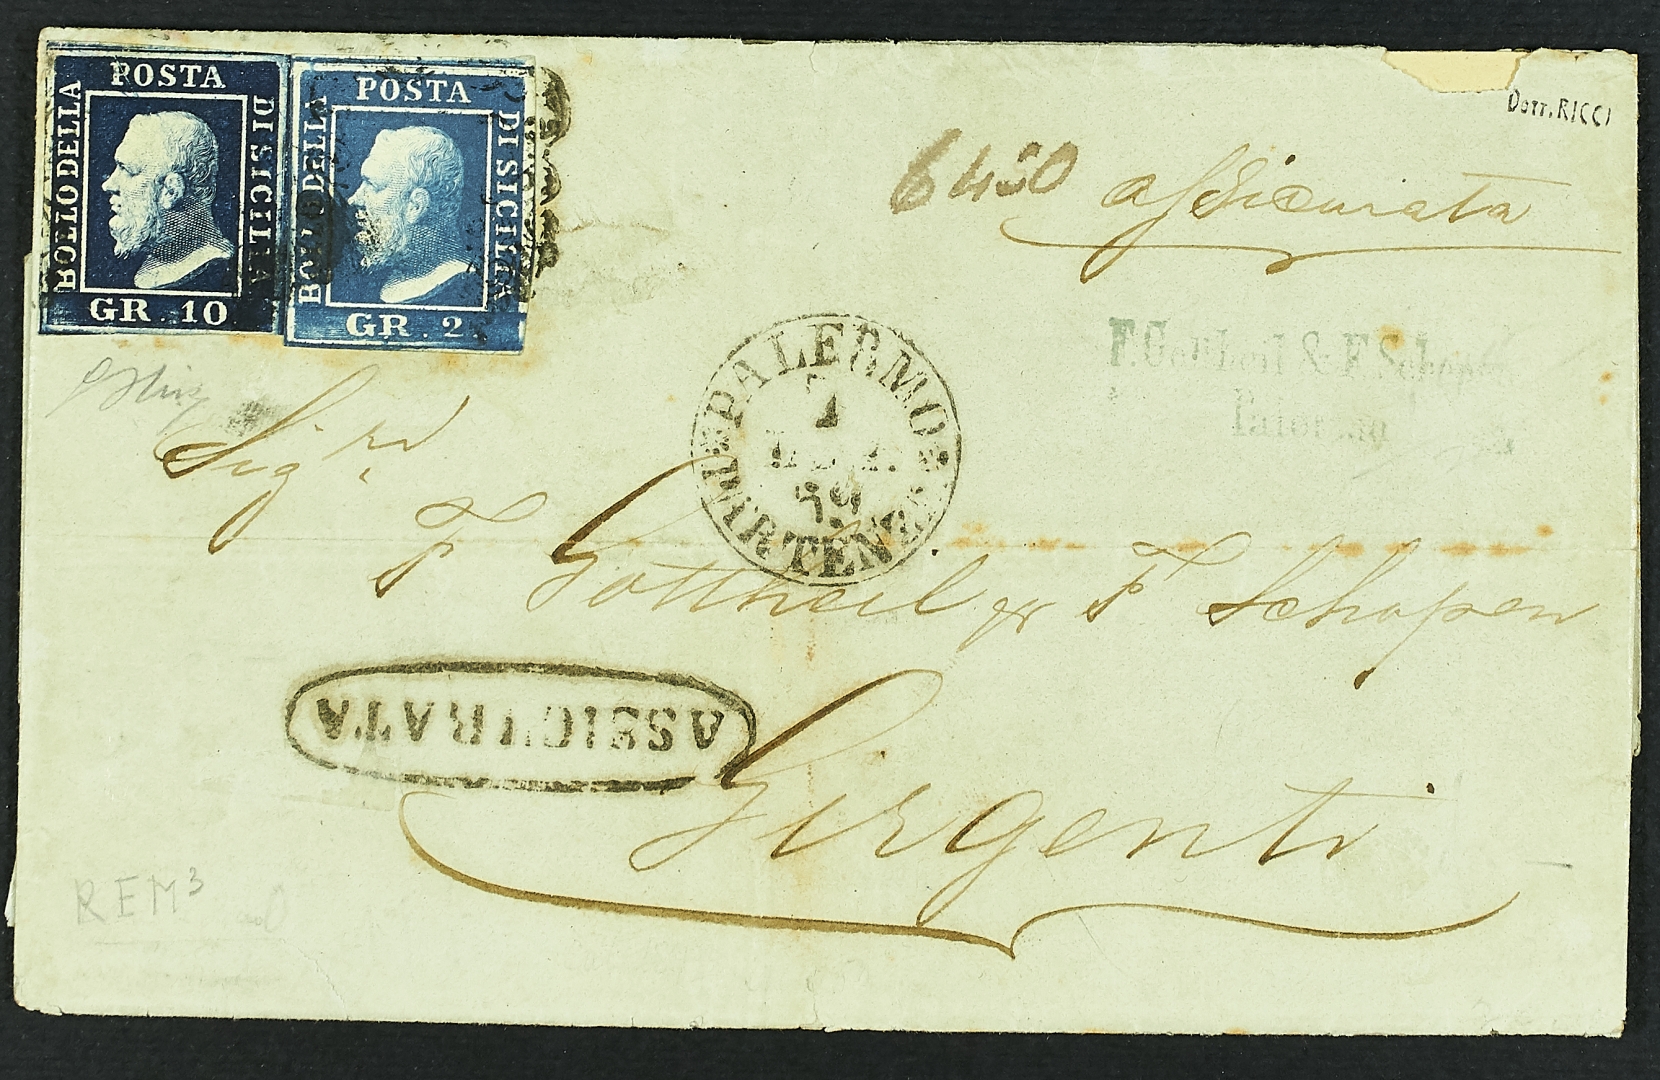 POSTA
BOLLO DELLA
DI SICILIA
GR. 10
POSTA
BOLLO DELLA
DI SICILIA
GR. 2
Dott. RICCI
6450 assicurata
F. Gottheil & F. Schopen
Palermo
PALERMO
59
PARTENZA
Sigri
F Gottheil & F Schopen
ASSICURATA
Girgenti
REM3